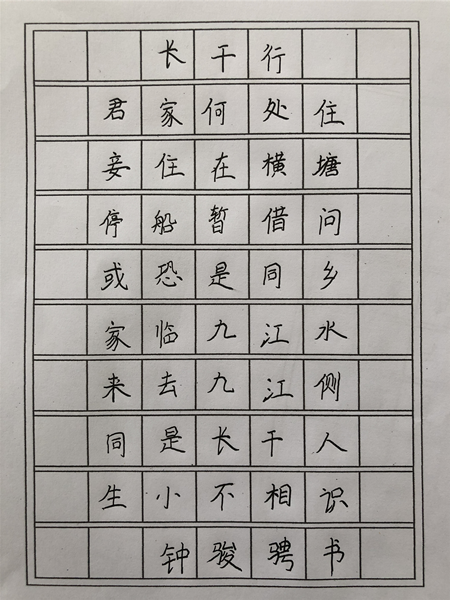 长干行
君家何处住
妾住在横塘
停船暂借问
或恐是同乡
家临九江水
来去九江侧
同是长干人
生小不相识
钟骏骋书